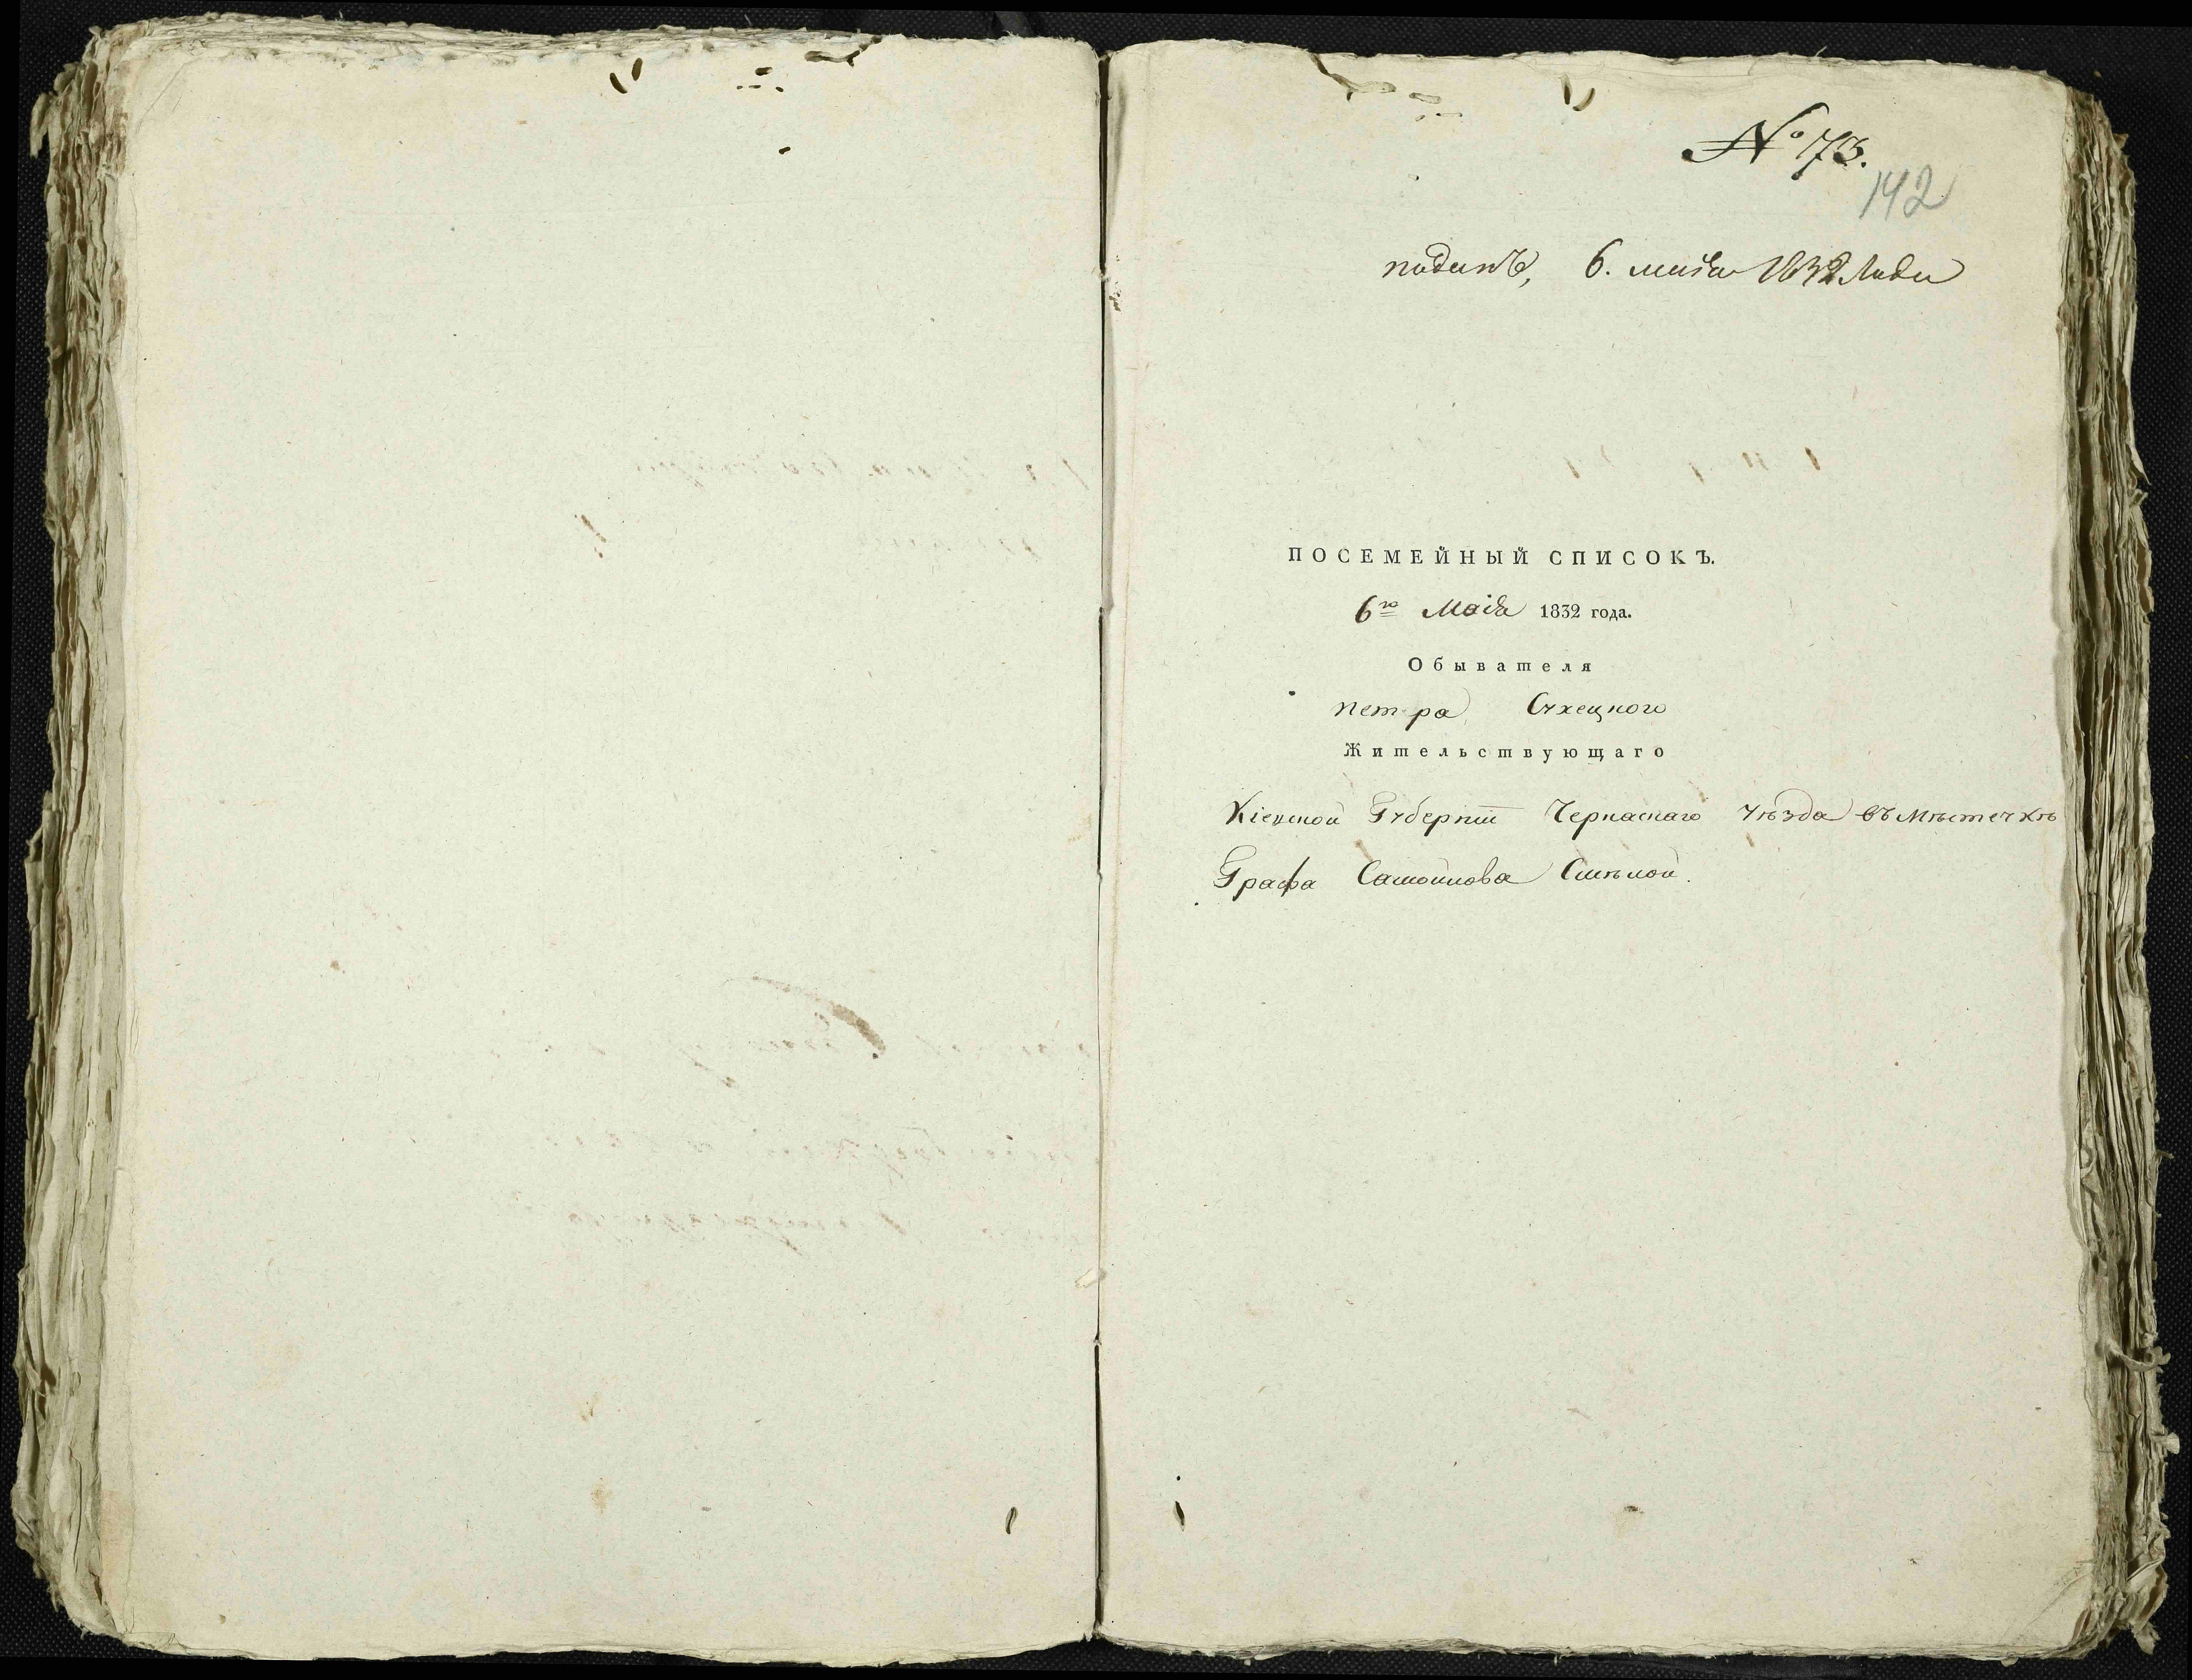 № 73.
142
поданъ, 6. маія 1832 года
ПОСЕМЕЙНЫЙ СПИСОКЪ.
6го Маія 1832 года.
Обывателя
петра Сухецкого
Жительствующаго
Кіевской Губерніи Черкаскаго уѣзда въ мѣстечкѣ
Графа Самойлова Смѣлой.